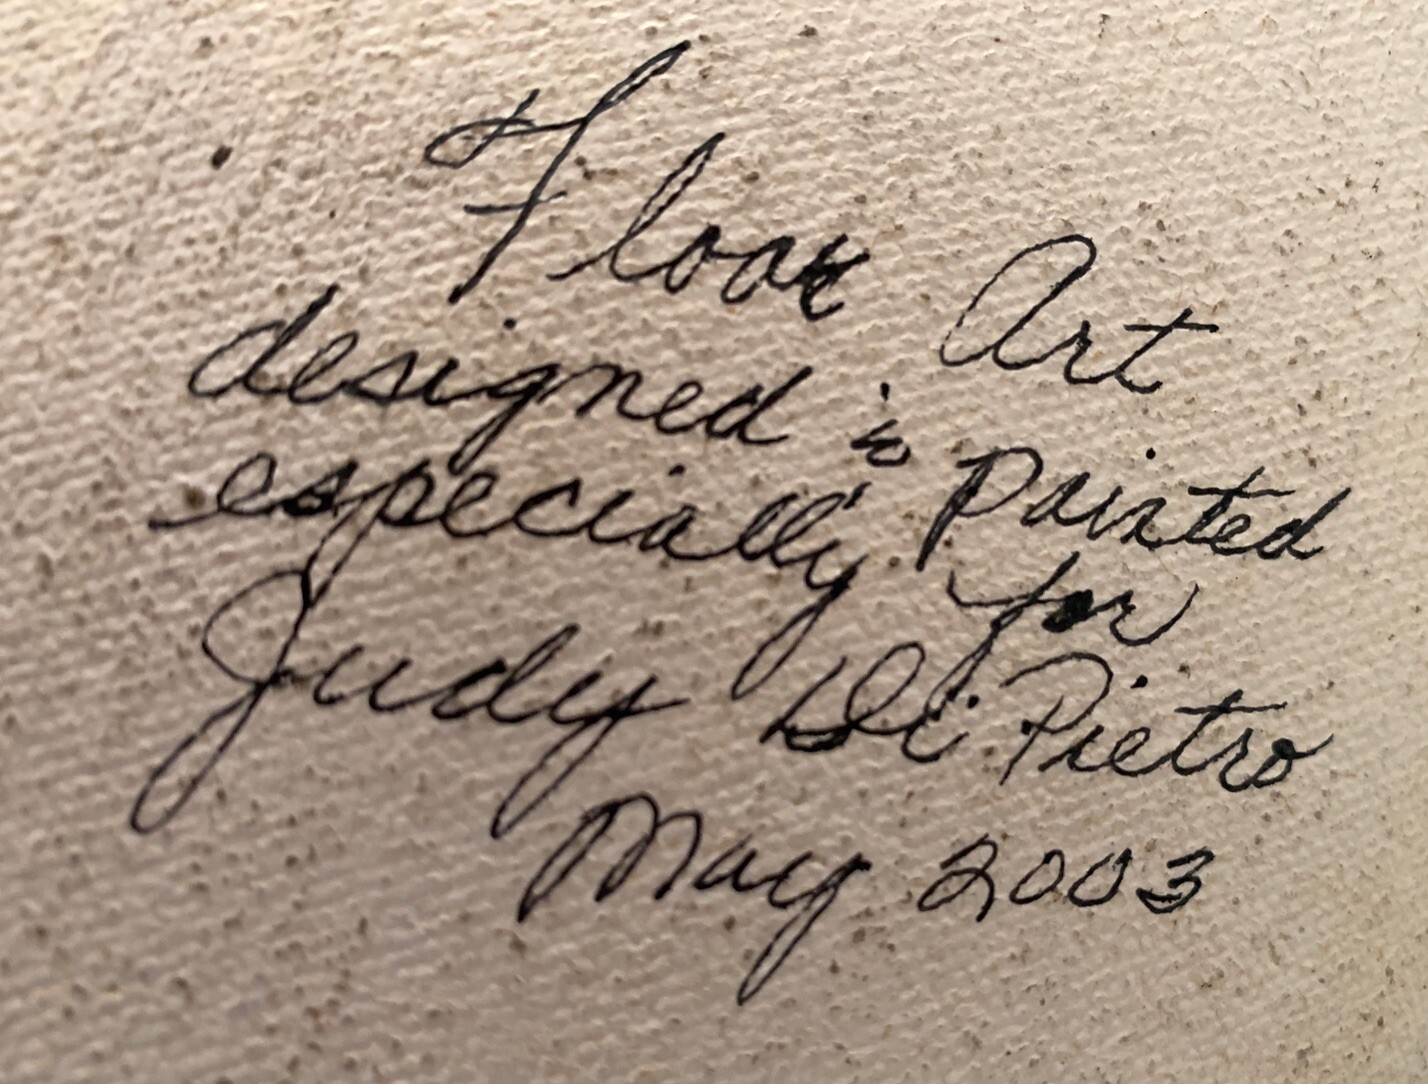 Floor Art
designed & painted
especially for
Judy Di Pietro
May 2003